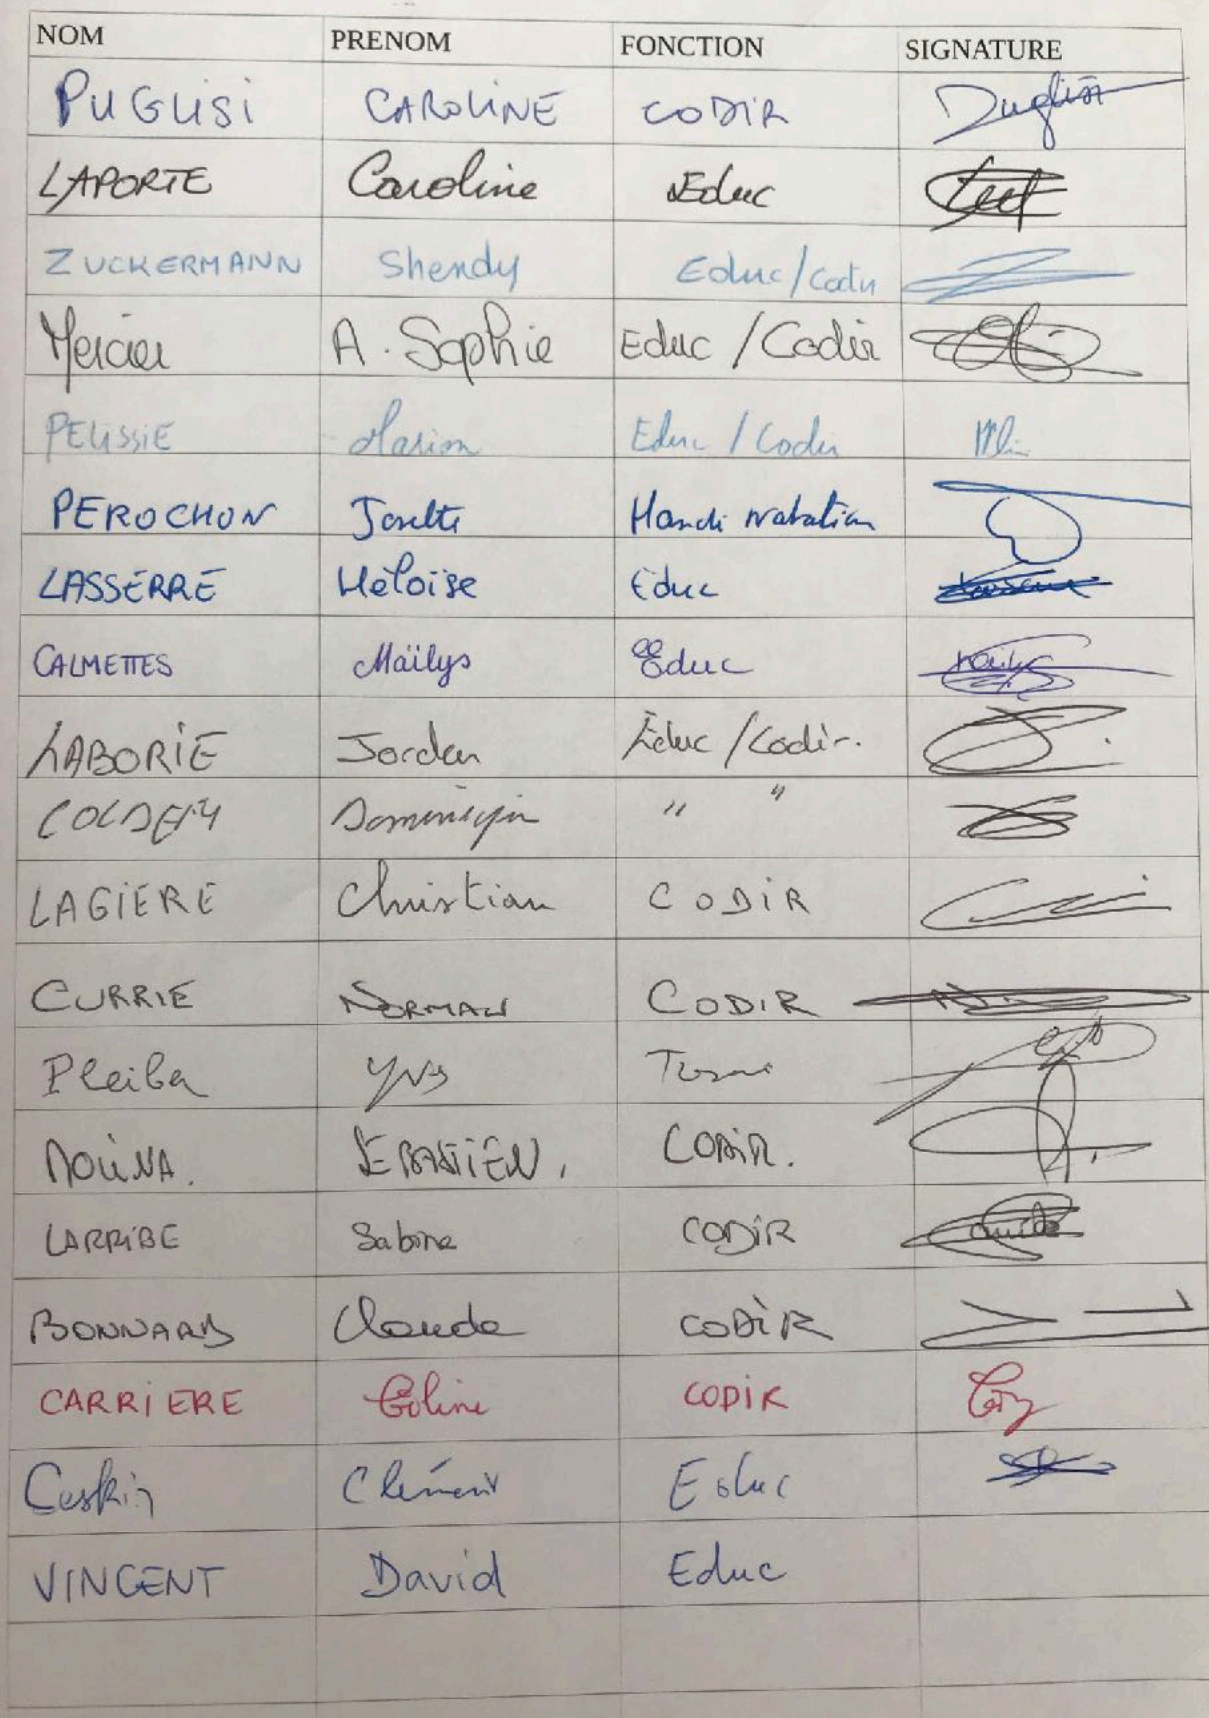 NOM PRENOM FONCTION SIGNATURE
PUGLISI CAROLINE CODIR Puglisi
LAPORTE Caroline Educ
ZUCKERMANN Shendy Educ/Codir
Mercier A. Sophie Educ/Codir
PELISSIE Marion Educ/Codir
PEROCHON Josette Handi natation
LASSERRE Héloïse Educ
CALMETTES Maïlys Educ
LABORIE Jorden Educ/Codir.
Dominique " "
LAGIERE Christian CODIR
CURRIE NORMAN CODIR
Yves
MOLINA. SEBASTIEN. CODIR.
LARRIBE Sabine CODIR
BONNARD Claude CODIR
CARRIERE Coline CODIR
Clément Educ
VINCENT David Educ